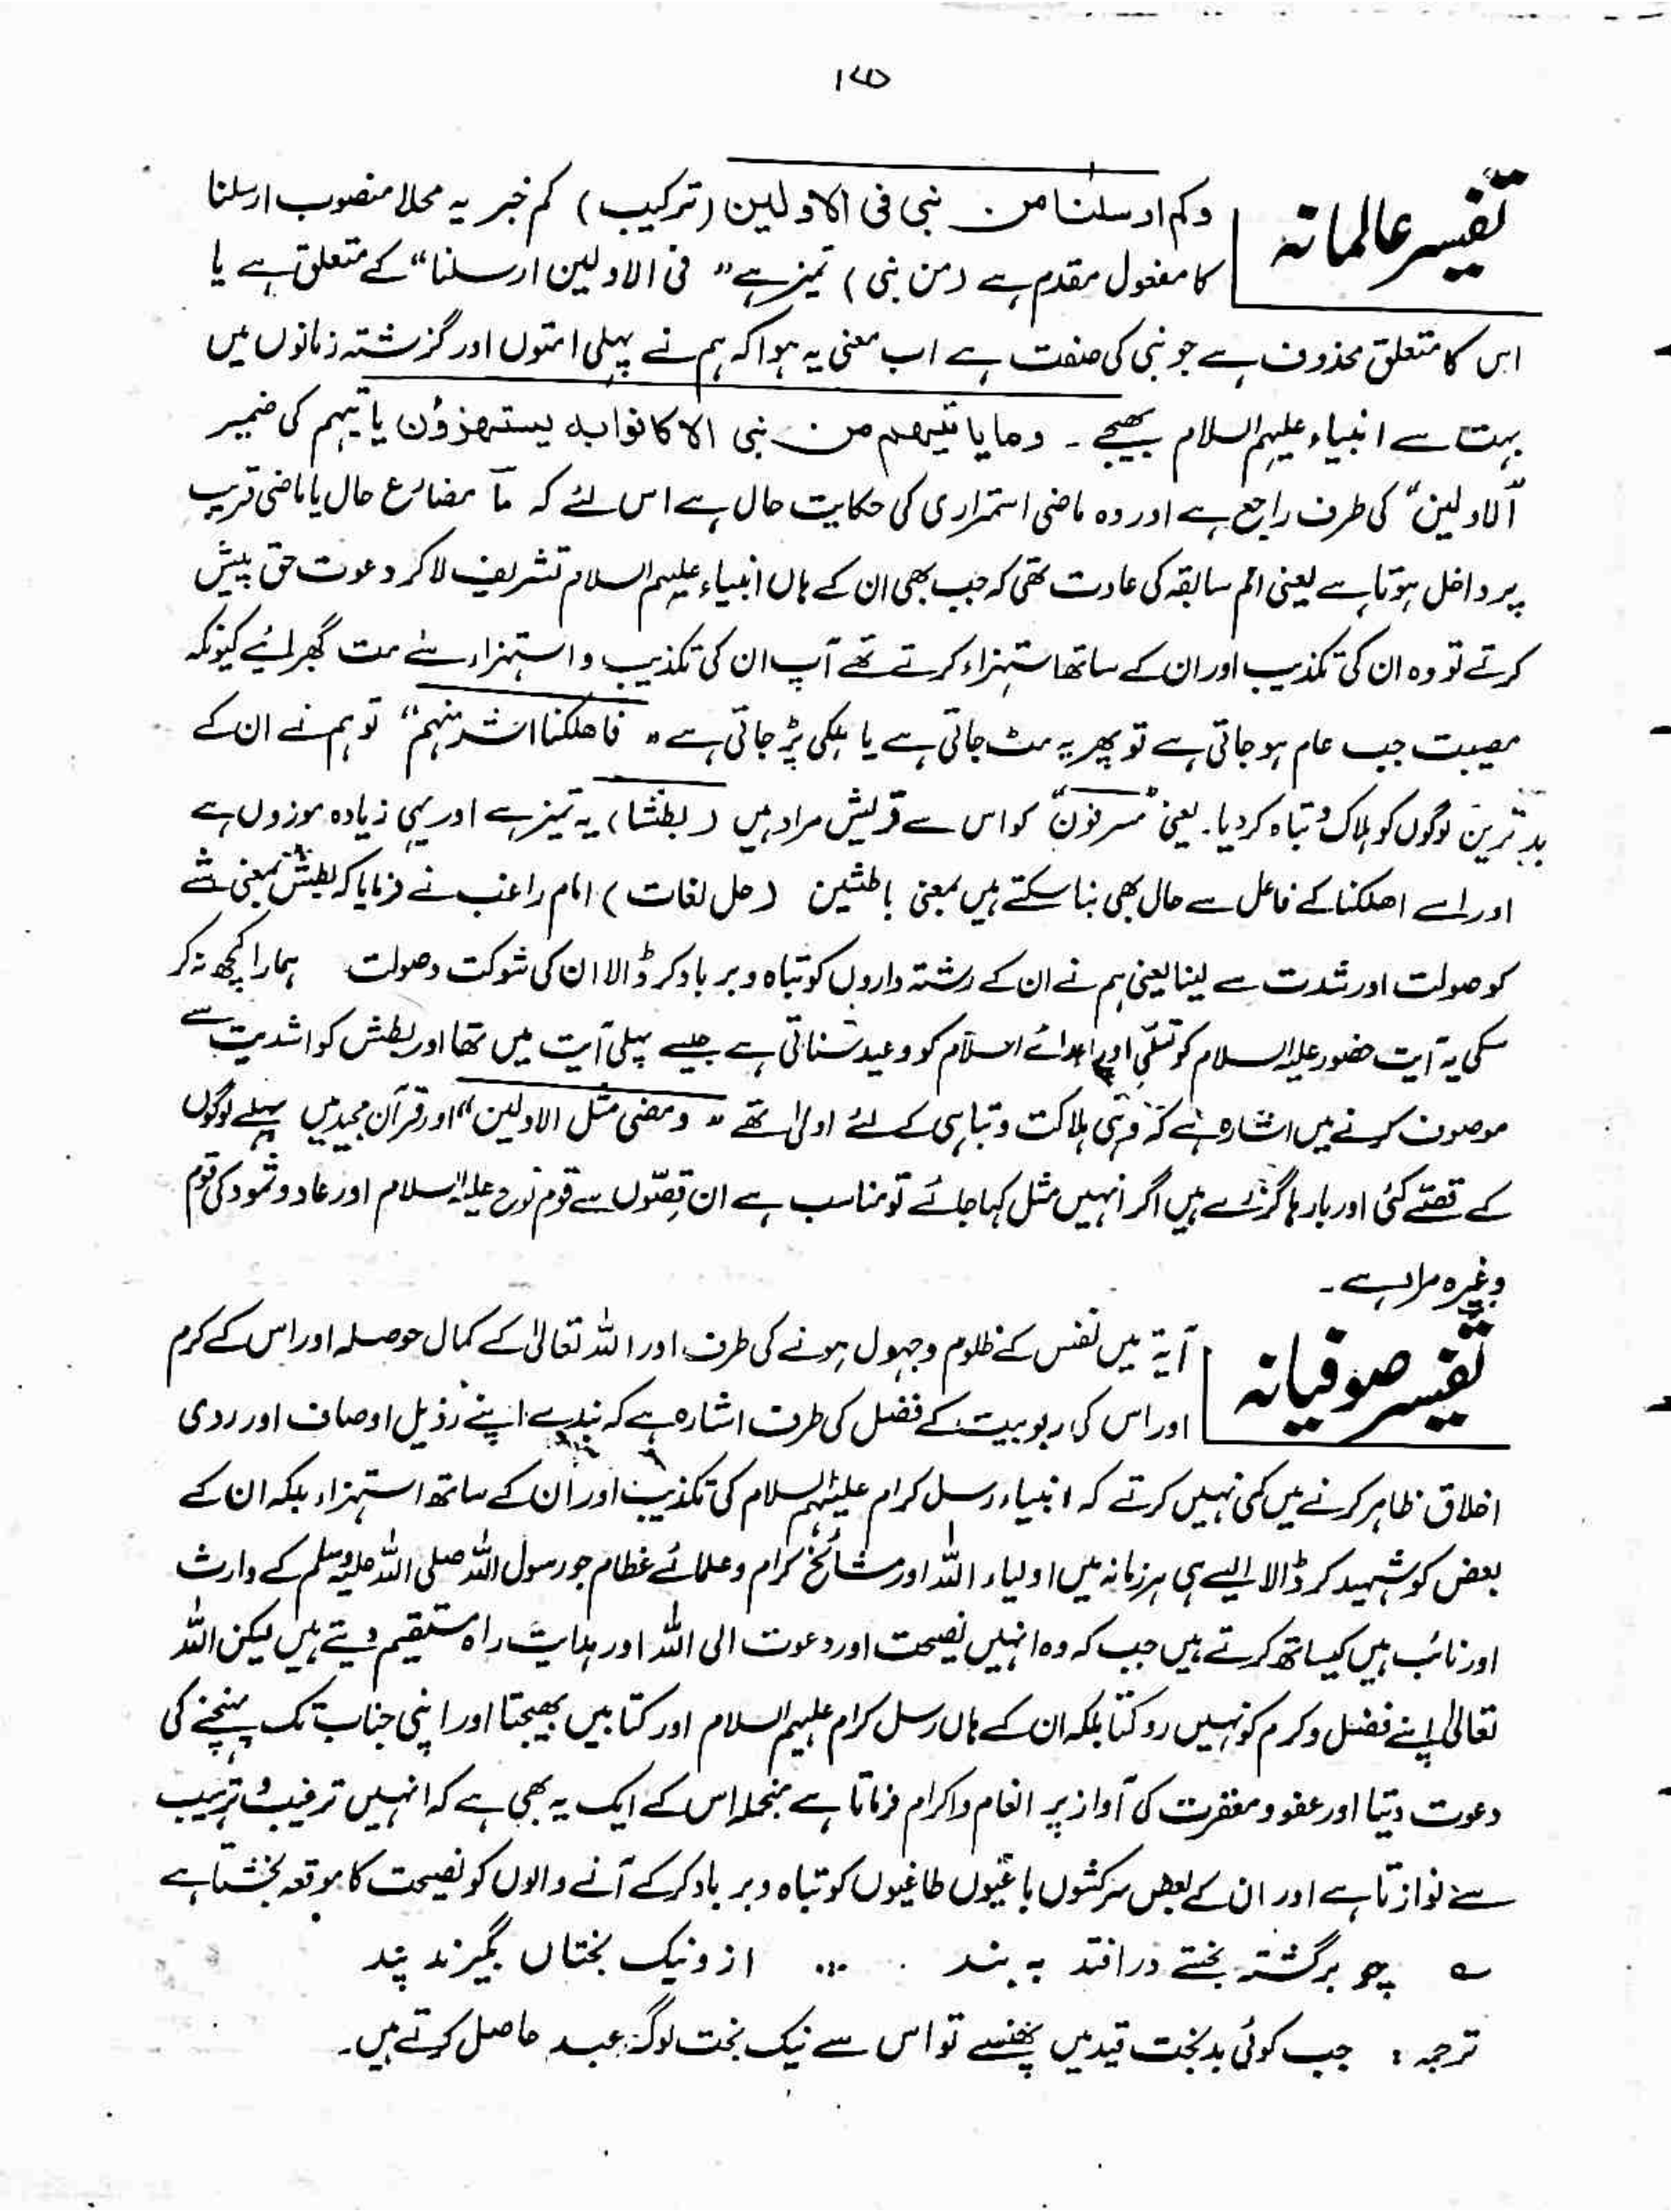 ۱۷۵
تفسیر عالمانہ
وکم ارسلنا من نبی فی الاولین (ترکیب) کم خبریہ محلا منصوب ارسلنا
کا مفعول مقدم ہے (من نبی) تمیز ہے "فی الاولین ارسلنا" کے متعلق ہے یا
اس کا متعلق محذوف ہے جو نبی کی صفت ہے اب معنی یہ ہوا کہ ہم نے پہلی امتوں اور گزشتہ زمانوں میں
بہت سے انبیاء علیہم السلام بھیجے ۔ وما یاتیھم من نبی الا کانوا بہ یستھزؤن یاتیہم کی ضمیر
"الاولین" کی طرف راجع ہے اور وہ ماضی استمراری کی حکایت حال ہے اس لئے کہ مآ مضارع حال یا ماضی قریب
پر داخل ہوتا ہے یعنی امم سابقہ کی عادت تھی کہ جب بھی ان کے ہاں انبیاء علیہم السلام تشریف لا کر دعوت حق پیش
کرتے تو وہ ان کی تکذیب اور ان کے ساتھ استہزاء کرتے تھے آپ ان کی تکذیب و استہزاء سے مت گھبرائیے کیونکہ
مصیبت جب عام ہو جاتی ہے تو پھر یہ مٹ جاتی ہے یا ہلکی پڑ جاتی ہے "فاھلکنا اشد منہم" تو ہم نے ان کے
بد ترین لوگوں کو ہلاک و تباہ کر دیا۔ یعنی "مسرفون" کو اس سے قریش مراد ہیں (بطشا) یہ تمیز ہے اور یہی زیادہ موزوں ہے
اور اسے اھلکنا کے فاعل سے حال بھی بنا سکتے ہیں بمعنی باطشین (حل لغات) امام راغب نے فرمایا کہ بطش بمعنی شے
کو صولت اور شدت سے لینا یعنی ہم نے ان کے رشتہ داروں کو تباہ و برباد کر ڈالا ان کی شوکت وصولت ہمارا کچھ نہ کر
سکی یہ آیت حضور علیہ السلام کو تسلی اور اعدائے اسلام کو وعید سناتی ہے جیسے پہلی آیت میں تھا اور بطش کو اشدیت سے
موصوف کرنے میں اشارہ ہے کہ وہی ہلاکت و تباہی کے لئے اولیٰ تھے "ومضی مثل الاولین" اور قرآن مجید میں پہلے لوگوں
کے قصے کئی اور بار ہا گزرے ہیں اگر انہیں مثل کہا جائے تو مناسب ہے ان قصّوں سے قوم نوح علیہ السلام اور عاد و ثمود کی قوم
وغیرہ مراد ہے ۔
تفسیر صوفیانہ
آیۃ میں نفس کے ظلوم و جہول ہونے کی طرف اور اللہ تعالیٰ کے کمال حوصلہ اور اس کے کرم
اور اس کی ربوبیت کے فضل کی طرف اشارہ ہے کہ بندے اپنے رذیل اوصاف اور ردی
اخلاق ظاہر کرنے میں کمی نہیں کرتے کہ انبیاء ورسل کرام علیہم السلام کی تکذیب اور ان کے ساتھ استہزاء بلکہ ان کے
بعض کو شہید کر ڈالا ایسے ہی ہر زمانہ میں اولیاء اللہ اور مشائخ کرام و علمائے عظام جو رسول اللہ صلی اللہ علیہ وسلم کے وارث
اور نائب ہیں کیساتھ کرتے ہیں جب کہ وہ انہیں نصیحت اور دعوت الی اللہ اور ہدایت راہ مستقیم دیتے ہیں لیکن اللہ
تعالیٰ اپنے فضل و کرم کو نہیں روکتا بلکہ ان کے ہاں رسل کرام علیہم السلام اور کتابیں بھیجتا اور اپنی جناب تک پہنچنے کی
دعوت دیتا اور عفو و مغفرت کی آواز پر انعام و اکرام فرماتا ہے منجملہ اس کے ایک یہ بھی ہے کہ انہیں ترغیب و ترہیب
سے نوازتا ہے اور ان کے بعض سرکشوں باغیوں طاغیوں کو تباہ و برباد کرکے آنے والوں کو نصیحت کا موقعہ بخشتا ہے
؎ چو برگشتہ بختے درافتد بہ بند ... از و نیک بختاں بگیرند پند
ترجمہ : جب کوئی بدبخت قید میں پھنسے تو اس سے نیک بخت لوگ حاصل کرتے ہیں۔